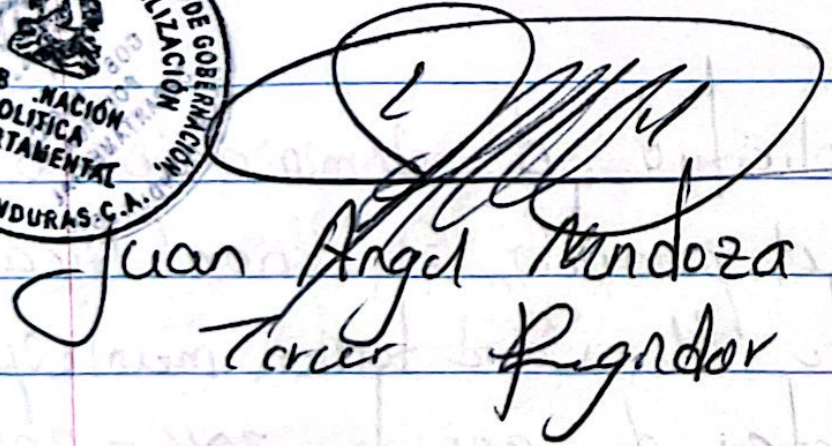 DE GOBERNACIÓN,
LIZACIÓN
NACIÓN
POLITICA
RTAMENTAL
NDURAS. C.A.
Juan Angel Mendoza
Tercer Regidor